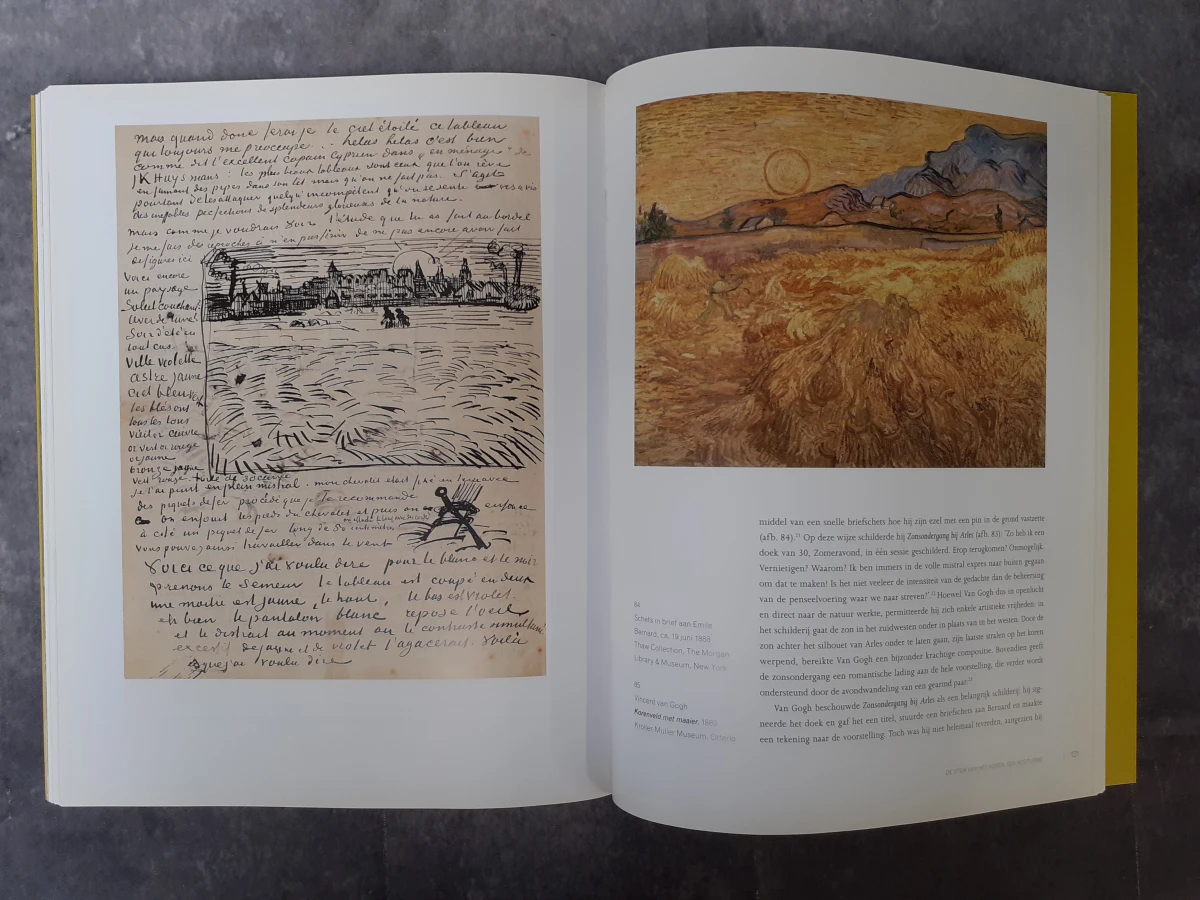 mais quand donc ferai-je le ciel étoilé ce tableau
qui toujours me préoccupe .. helas helas c'est bien
comme dit l'excellent copain Cyprien dans „en ménage" de
JK Huysmans: les plus beaux tableaux sont ceux que l'on rêve
en fumant des pipes dans son lit mais qu'on ne fait pas. S'agit
pourtant de les attaquer quelqu'incompétent qu'on se sente vis à vis
des ineffables perfections de splendeurs glorieuses de la nature.
Mais comme je voudrais voir l'étude que tu as fait au bordel
Je me fais des reproches à n'en pas finir de ne pas encore avoir fait
de figures ici
Voici encore
un paysage
Soleil couchant
lever de lune
Soir d'été en
tout cas
Ville violette
astre jaune
ciel bleu vert
les blés ont
tous les tons
vieil or cuivre
or vert or rouge
or jaune
bronze jaune
vert rouge. toile de 30 carrée
je l'ai peint en plein mistral. mon chevalet était fixé en terre avec
des piquets de fer procédé que je te recommande
on enfouit les pieds du chevalet et puis on enfonce
à côté un piquet de fer long de 50 centimètres
on attache le tout avec des cordes
Vous pouvez ainsi travailler dans le vent
Voici ce que j'ai voulu dire pour le blanc et le noir
prenons le Semeur le tableau est coupé en deux
une moitié est jaune, le haut, le bas est violet.
eh bien le pantalon blanc repose l'oeil
et le distrait au moment où le contraste simultané
excessif de jaune et de violet l'agacerait. Voilà
ce que j'ai voulu dire
middel van een snelle briefschets hoe hij zijn ezel met een pin in de grond vastzette
(afb. 84).²¹ Op deze wijze schilderde hij Zonsondergang bij Arles (afb. 83): 'Zo heb ik een
doek van 30, Zomeravond, in één sessie geschilderd. Erop terugkomen? Onmogelijk.
Vernietigen? Waarom? Ik ben immers in de volle mistral expres naar buiten gegaan
om dat te maken! Is het niet veeleer de intensiteit van de gedachte dan de beheersing
van de penseelvoering waar we naar streven?'²² Hoewel Van Gogh dus in openlucht
en direct naar de natuur werkte, permitteerde hij zich enkele artistieke vrijheden: in
het schilderij gaat de zon in het zuidwesten onder in plaats van in het westen. Door de
zon achter het silhouet van Arles onder te laten gaan, zijn laatste stralen op het koren
werpend, bereikte Van Gogh een bijzonder krachtige compositie. Bovendien geeft
de zonsondergang een romantische lading aan de hele voorstelling, die verder wordt
ondersteund door de avondwandeling van een gearmd paar.²³
Van Gogh beschouwde Zonsondergang bij Arles als een belangrijk schilderij: hij sig-
neerde het doek en gaf het een titel, stuurde een briefschets aan Bernard en maakte
een tekening naar de voorstelling. Toch was hij niet helemaal tevreden, aangezien hij
84
Schets in brief aan Emile
Bernard, ca. 19 juni 1888
Thaw Collection, The Morgan
Library & Museum, New York
85
Vincent van Gogh
Korenveld met maaier, 1889
Kröller-Müller Museum, Otterlo